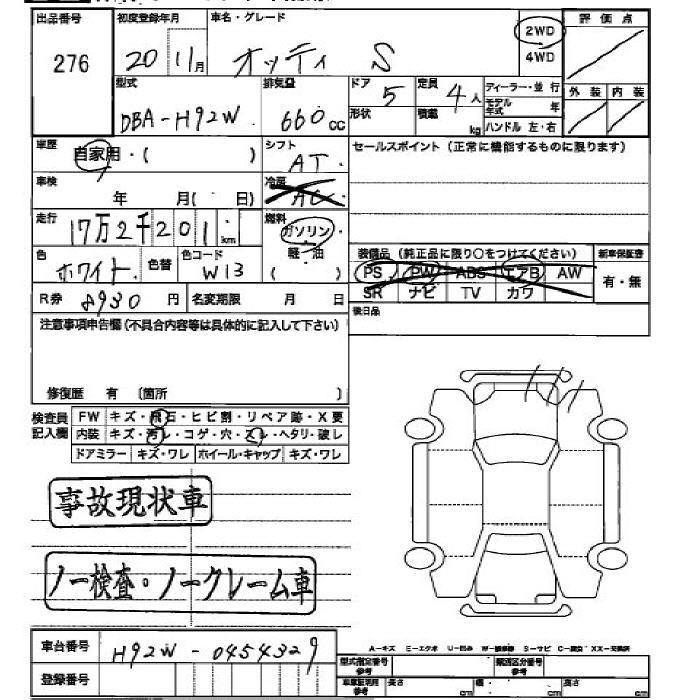 出品番号 初度登録年月 車名・グレード 評価点
276 20 11月 オッティ S 2WD
4WD
型式 排気量 ドア 定員 ディーラー・並行 外装 内装
DBA-H92W 660cc 5 4人 モデル年式 年
形状 積載 kg ハンドル 左・右
車歴 自家用・( ) シフト AT セールスポイント(正常に機能するものに限ります)
車検 年 月( 日) 冷房 AC
走行 17万2千201km 燃料 ガソリン・
軽・油
( )
色 ホワイト 色替 色コード W13
装備品(純正品に限り○をつけてください) 新車保証書
PS PW ABS エアB AW 有・無
SR ナビ TV カワ
R券 8930円 名変期限 月 日 後日品
注意事項申告欄(不具合内容等は具体的に記入して下さい)
修復歴 有 〔箇所 〕
検査員 FW キズ・飛石・ヒビ割・リペア跡・X要
記入欄 内装 キズ・汚レ・コゲ・穴・スレ・ヘタリ・破レ
ドアミラー キズ・ワレ ホイール・キャップ キズ・ワレ
事故現状車
ノー検査・ノークレーム車
A-キズ E-エクボ U-凹み W-補修跡 S-サビ C-腐食 XX-交換済
車台番号 H92W-0454329
型式指定番号 参考 類別区分番号 参考
登録番号 長さ cm 幅 cm 高さ cm